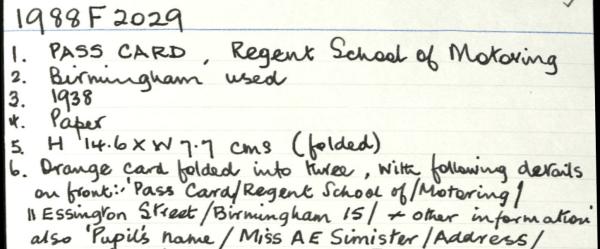 1988 F 2029
1. PASS CARD, Regent School of Motoring
2. Birmingham used
3. 1938
4. Paper
5. H 14.6 x W 7.7 cms (folded)
6. Orange card folded into three, with following details
on front:- 'Pass Card/Regent School of/Motoring/
11 Essington Street/Birmingham 15/ + other information'
also 'Pupil's name/Miss AE Simister/Address/